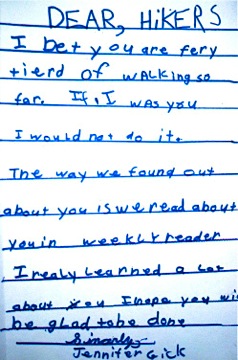 DEAR, HiKERS
I bet you are fery
tierd of wALKing so
far. If, I wAs you
I would not do it.
The way we found out
about you is we read about
you in weekly reader
I realy Learned a Lot
about you I hope you wi
be glad to be done
Sinarly
Jennifer Gick